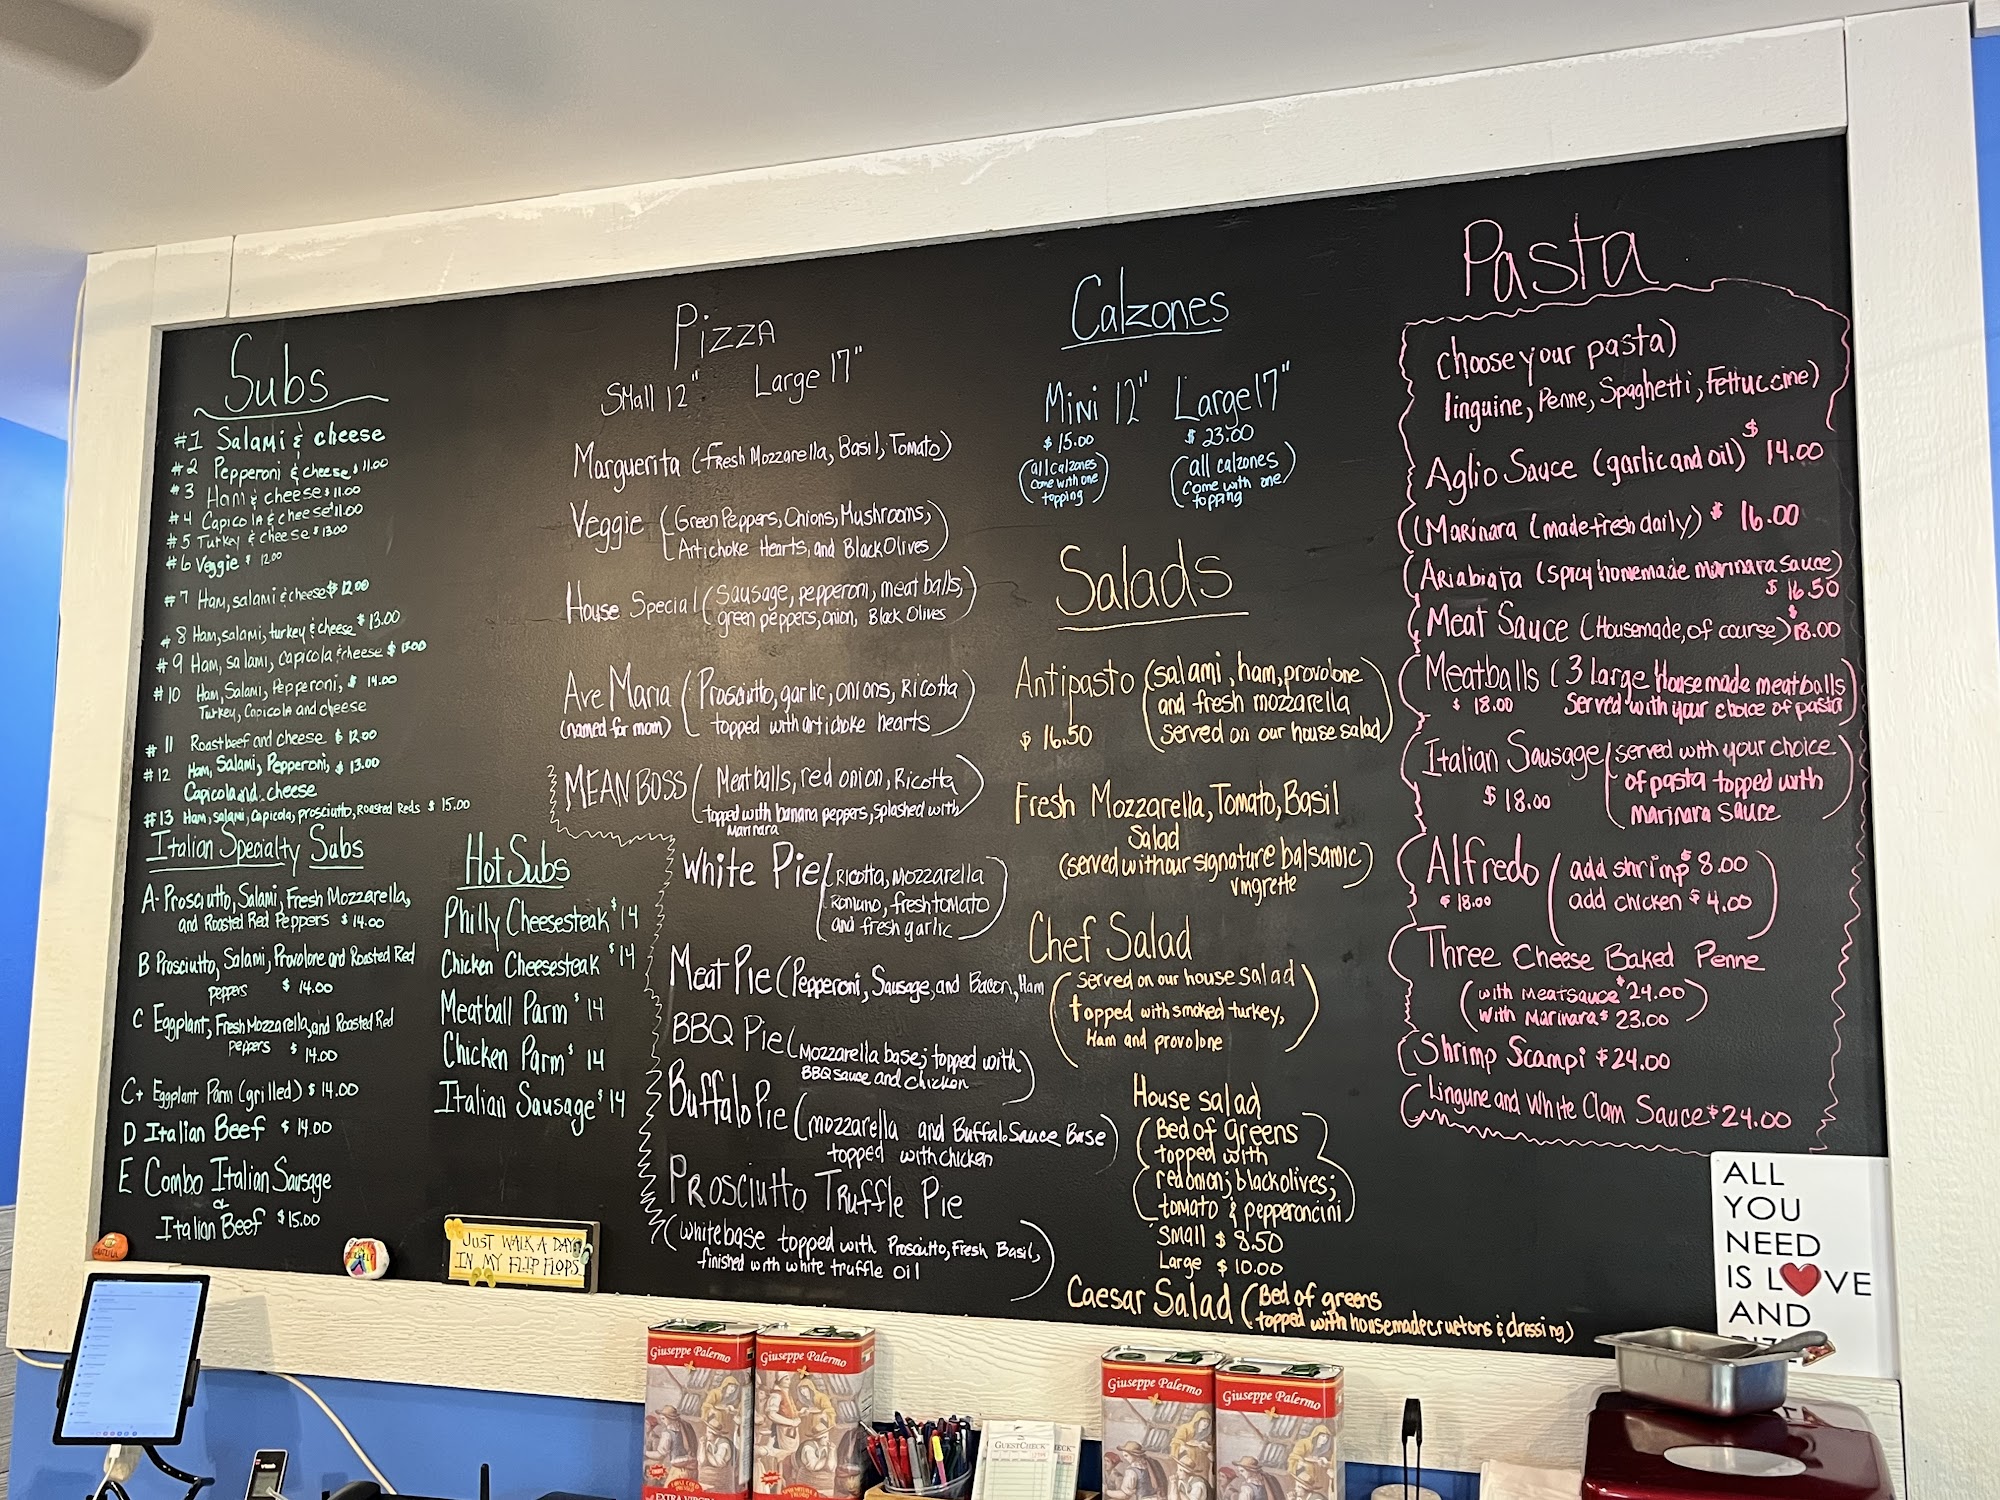 Subs
#1 Salami & cheese
#2 Pepperoni & cheese $11.00
#3 Ham & cheese $11.00
#4 Capicola & cheese $11.00
#5 Turkey & cheese $13.00
#6 Veggie $12.00
#7 Ham, salami & cheese $12.00
#8 Ham, salami, turkey & cheese $13.00
#9 Ham, salami, capicola & cheese $
#10 Ham, Salami, Pepperoni, $14.00
Turkey, Capicola and cheese
#11 Roast beef and cheese $12.00
#12 Ham, Salami, Pepperoni, $13.00
Capicola and cheese
#13 Ham, salami, capicola, prosciutto, Roasted Reds $15.00
Italian Specialty Subs
A- Prosciutto, Salami, Fresh Mozzarella,
and Roasted Red Peppers $14.00
B Prosciutto, Salami, Provolone and Roasted Red
peppers $14.00
C Eggplant, Fresh Mozzarella, and Roasted Red
peppers $14.00
C+ Eggplant Parm (grilled) $14.00
D Italian Beef $14.00
E Combo Italian Sausage
&
Italian Beef $15.00
Hot Subs
Philly Cheesesteak $14
Chicken Cheesesteak $14
Meatball Parm $14
Chicken Parm $14
Italian Sausage $14
Pizza
Small 12" Large 17"
Marguerita (Fresh Mozzarella, Basil, Tomato)
Veggie (Green Peppers, Onions, Mushrooms,
Artichoke Hearts, and Black Olives)
House Special (Sausage, pepperoni, meat balls,
green peppers, onion, Black Olives
Ave Maria (Prosciutto, garlic, onions, Ricotta
(named for mom) topped with artichoke hearts)
MEAN BOSS (Meatballs, red onion, Ricotta
topped with banana peppers, splashed with
marinara)
White Pie (Ricotta, Mozzarella
Romano, fresh tomato
and fresh garlic)
Meat Pie (Pepperoni, Sausage, and Bacon, Ham
BBQ Pie (Mozzarella base; topped with
BBQ sauce and chicken)
Buffalo Pie (mozzarella and Buffalo Sauce Base
topped with chicken)
Prosciutto Truffle Pie
(white base topped with Prosciutto, Fresh Basil,
finished with white truffle oil)
Calzones
Mini 12" Large 17"
$15.00 $23.00
(all calzones (all calzones
come with one come with one
topping) topping)
Salads
Antipasto (salami, ham, provolone
and fresh mozzarella
$16.50 served on our house salad)
Fresh Mozzarella, Tomato, Basil
Salad
(served with our signature balsamic
vingrette)
Chef Salad
(served on our house salad
topped with smoked turkey,
Ham and provolone)
House salad
(Bed of greens
topped with
red onion; black olives;
tomato & pepperoncini)
Small $8.50
Large $10.00
Caesar Salad (Bed of greens
topped with housemade crutons & dressing)
Pasta
(choose your pasta)
linguine, Penne, Spaghetti, Fettuccine)
Aglio Sauce (garlic and oil) $14.00
Marinara (made fresh daily) $16.00
Ariabiata (spicy homemade marinara sauce)
$16.50
Meat Sauce (Housemade, of course) $18.00
Meatballs (3 large Housemade meatballs
$18.00 Served with your choice of pasta)
Italian Sausage (served with your choice
of pasta topped with
$18.00 marinara sauce)
Alfredo (add shrimp $8.00
$18.00 add chicken $4.00)
Three Cheese Baked Penne
(with Meatsauce $24.00
with Marinara $23.00)
Shrimp Scampi $24.00
Lingune and White Clam Sauce $24.00
ALL
YOU
NEED
IS L❤VE
AND
JUST WALK A DAY
IN MY FLIP FLOPS
Giuseppe Palermo
Giuseppe Palermo
Giuseppe Palermo
Giuseppe Palermo
EXTRA VIRGIN
GUESTCHECK